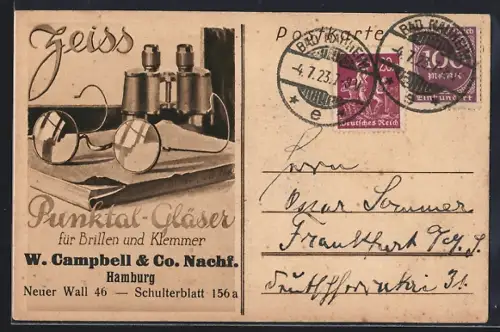 Zeiss
Punktal-Gläser
für Brillen und Klemmer
W. Campbell & Co. Nachf.
Hamburg
Neuer Wall 46 — Schulterblatt 156a
Postkarte
BAD NAUHEIM
-4.7.23.
* e
20
Deutsches Reich
BAD NAUHEIM
-4.7.
e
100
Mark
Einhundert
Herrn
Oscar Sommer
Frankfurt
31.